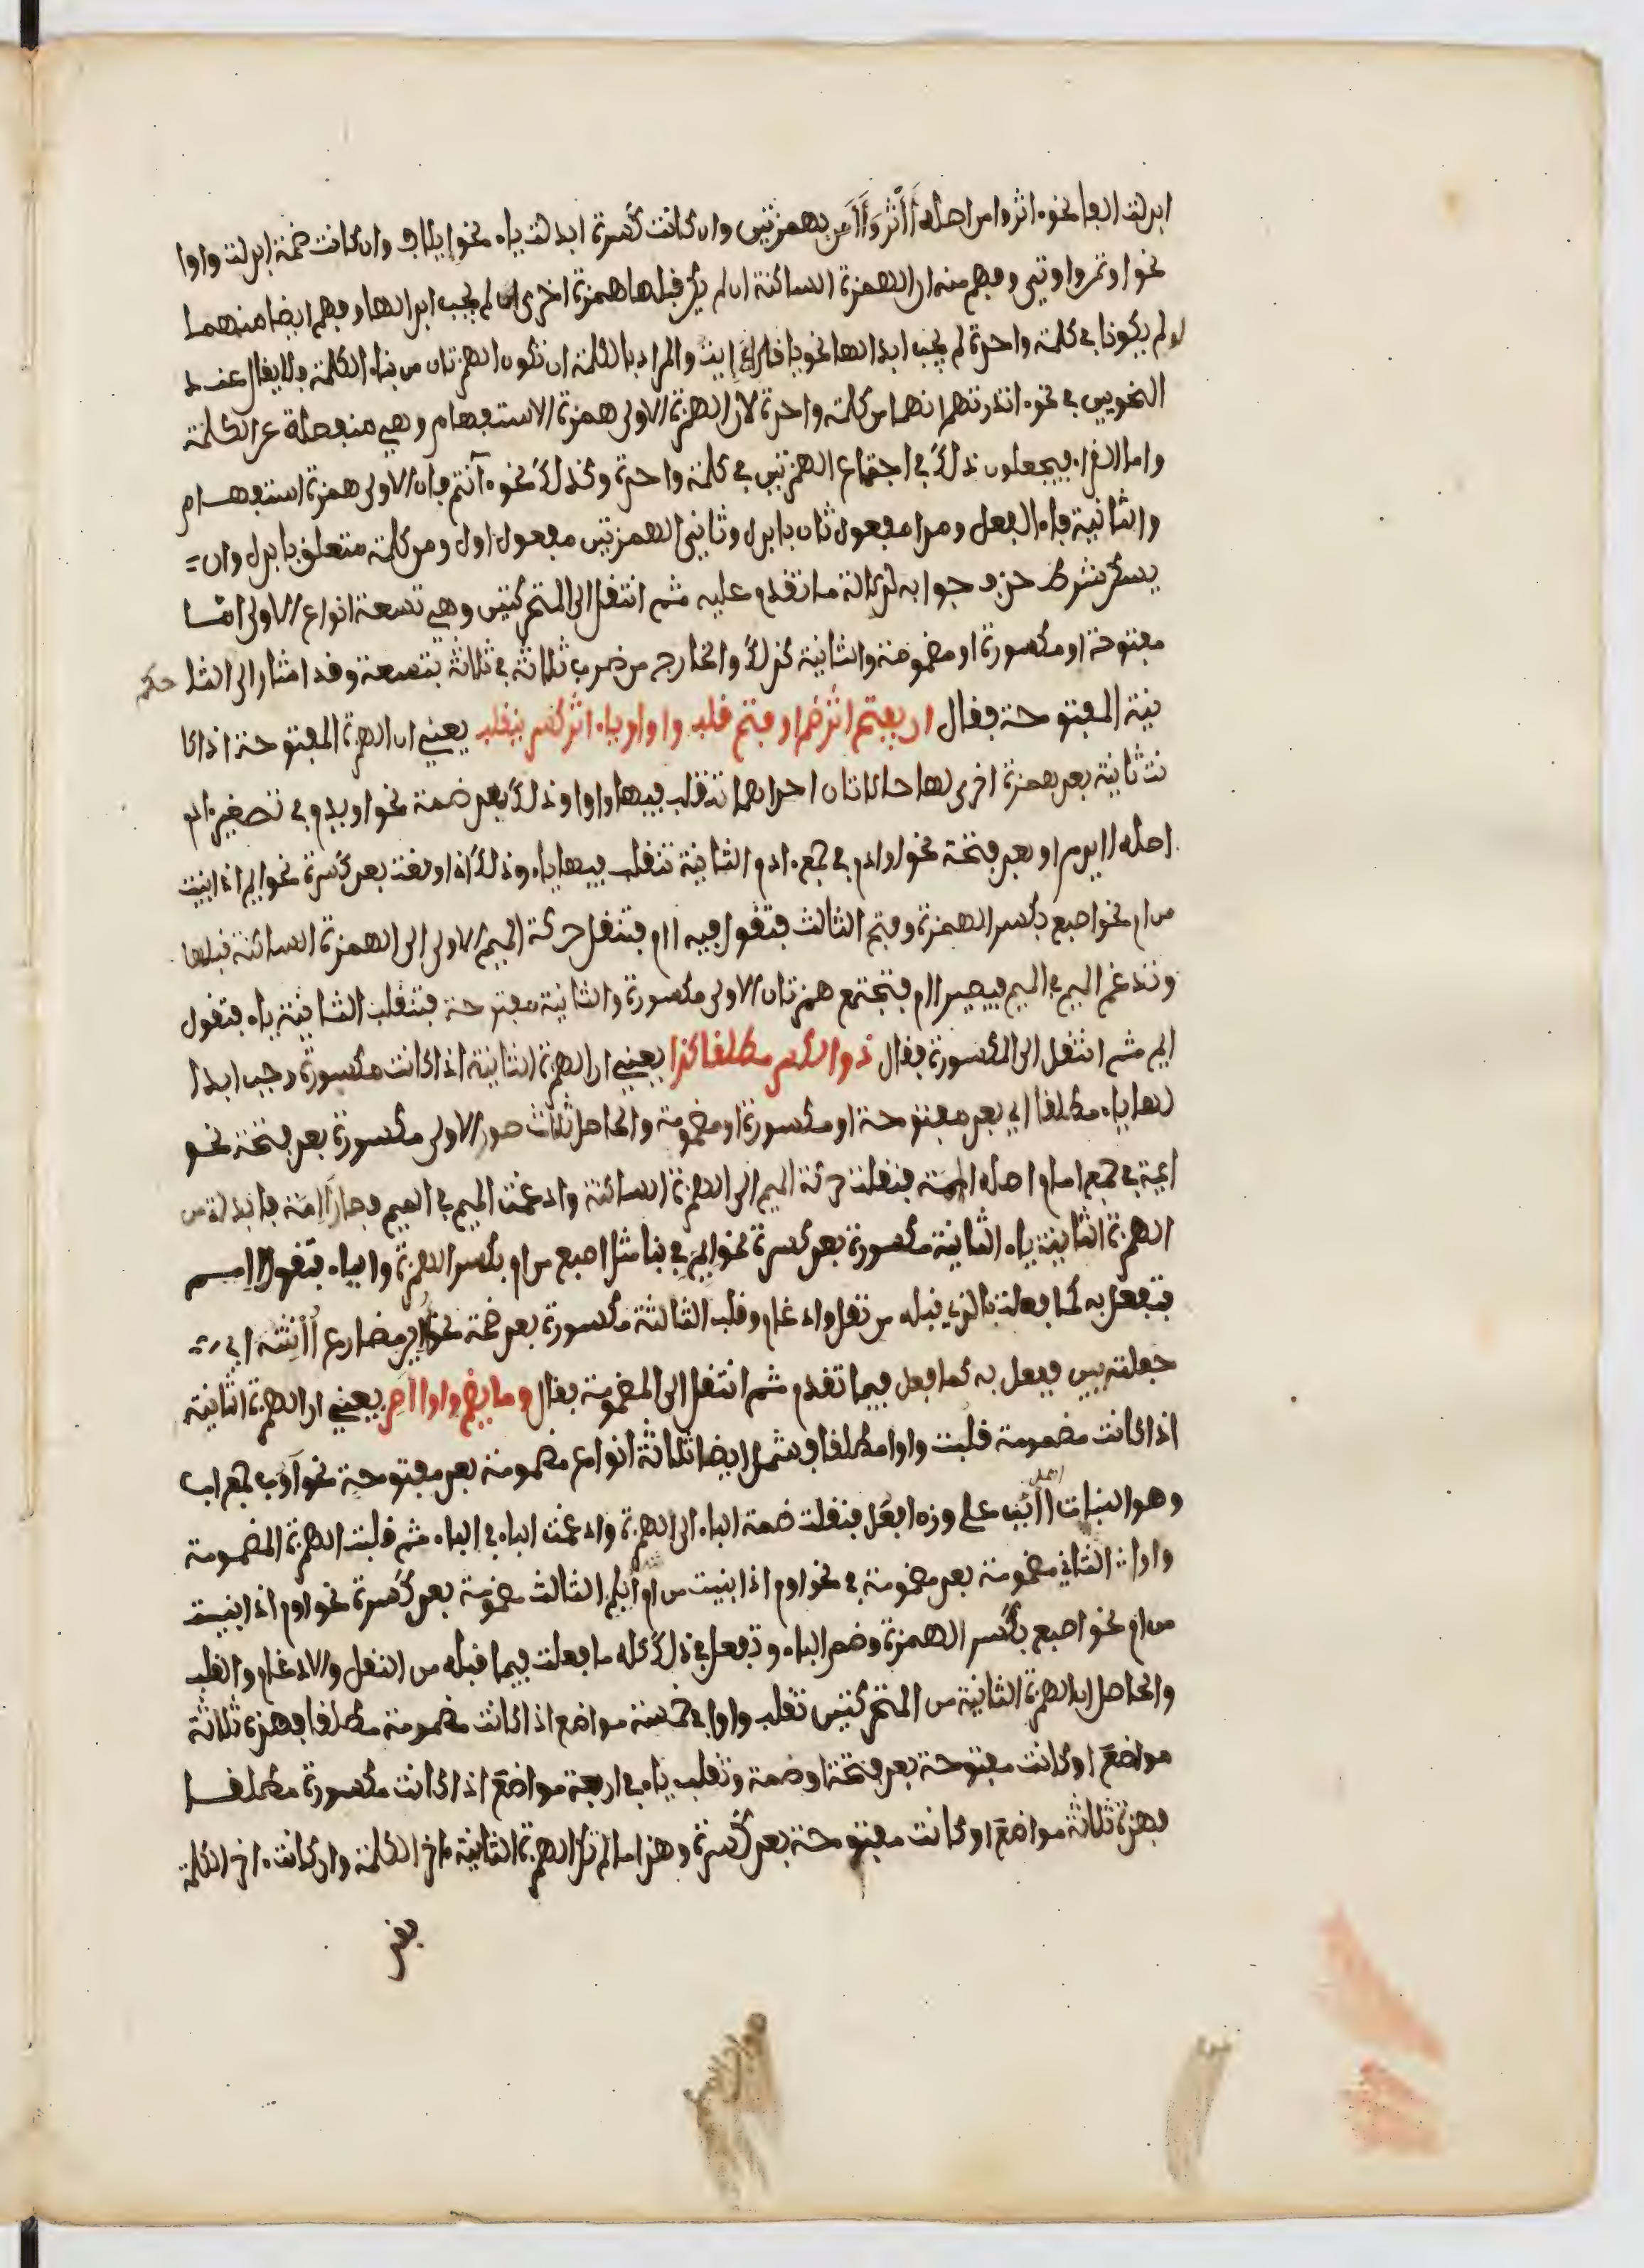 ابدلت الفا نحو ءاثر وامن اصله أَأْثَرَ وَأَأْمَن بهمزتين وان كانت كسرة ابدلت ياء نحو ايلاف وان كانت ضمة ابدلت واوا
نحو اوتمر واوتي وفهم منه ان الهمزة الساكنة ان لم يكن قبلها همزة اخرى لم يجب ابدالها وفهم ايضا منهما
لو لم يكونا في كلمة واحدة لم يجب ابدالها نحو يا قارئ ايت والمراد بالكلمة ان تكون الهمزتان من بناء الكلمة فلا يقال عند
النحويين في نحو ءانذرتهم انهما من كلمة واحدة لان الهمزة الاولى همزة الاستفهام وهي منفصلة عن الكلمة
واما القراء فيجعلون ذلك في اجتماع الهمزتين في كلمة واحدة وكذلك نحو ءآنتم فان الاولى همزة استفهام
والثانية فاء الفعل ومدا مفعول ثان بابدل وثاني الهمزتين مفعول اول ومن كلمة متعلق بابدل وان
يسكن شرط حذف جوابه لدلالة ما تقدم عليه ثم انتقل الى المتحركتين وهي تسعة انواع الاولى اما
مفتوحة او مكسورة او مضمومة والثانية كذلك والخارج من ضرب ثلاثة في ثلاثة بتسعة وقد اشار الى الثا حكم
نية المفتوحة فقال ان يفتح اثر ضم او فتح قلب واوا وياء اثر كسر ينقلب يعني ان الهمزة المفتوحة اذا كا
نت ثانية بعد همزة اخرى لها حالتان احداهما تنقلب فيها واوا وذلك بعد ضمة نحو اويدم في تصغير ءادم
اصله اايدم او بعد فتحة نحو اوادم في جمع ءادم الثانية تنقلب فيها ياء وذلك اذا وقعت بعد كسرة نحو ايم اذا بنيت
من ام نحو اصبع بكسر الهمزة وفتح الثالث فتقول فيه اام فتنقل حركة الميم الاولى الى الهمزة الساكنة قبلها
وتدغم الميم في الميم فيصير اام فتجتمع همزتان الاولى مكسورة والثانية مفتوحة فتنقلب الثانية ياء فتقول
ايم ثم انتقل الى المكسورة فقال ذو الكسر مطلقا كذا يعني ان الهمزة الثانية اذا كانت مكسورة وجب ابدا
لها ياء مطلقا اي بعد مفتوحة او مكسورة او مضمومة والحاصل ثلاث صور الاولى مكسورة بعد فتحة نحو
ايمة في جمع امام اصله فنقلت حركة الميم الى الهمزة الساكنة وادغمت الميم في الميم فصار أَاِمّة فابدلت من
الهمزة الثانية ياء الثانية مكسورة بعد كسرة نحو ايم في بنا مثل اصبع من ام بكسر الهمزة والباء فتقول اامم
فتفعل به كما فعلت بالذي قبله من نقل وادغام وقلب الثالثة مكسورة بعد ضمة نحو اين مضارع أأننته اي
جعلته يين ففعل به كما فعل فيما تقدم ثم انتقل الى المضمومة فقال وما يضم واوا اصر يعني ان الهمزة الثانية
اذا كانت مضمومة قلبت واوا مطلقا وشمل ايضا ثلاثة انواع مضمومة بعد مفتوحة نحو أوب جمع اب
وهو النبات اصله اابب على وزن افعل فنقلت ضمة الباء الى الهمزة وادغمت الباء في الباء ثم قلبت الهمزة المضمومة
واوا الثاني مضمومة بعد مضمومة في نحو اوم اذا بنيت من ام الثالث مضمومة بعد كسرة نحو اوم اذا بنيت
من ام نحو اصبع بكسر الهمزة وضم الباء وتفعل في ذلك كله ما فعلت فيما قبله من النقل والادغام والقلب
والحاصل ان الهمزة الثانية من المتحركتين تقلب واوا في خمسة مواضع اذا كانت مضمومة مطلقا فهذه ثلاثة
مواضع او كانت مفتوحة بعد فتحة او ضمة وتقلب ياء في اربعة مواضع اذا كانت مكسورة مطلقا
فهذه ثلاثة مواضع او كانت مفتوحة بعد كسرة وهذا ما لم تكن الهمزة الثانية ءاخر الكلمة وان كانت ءاخر الكلمة